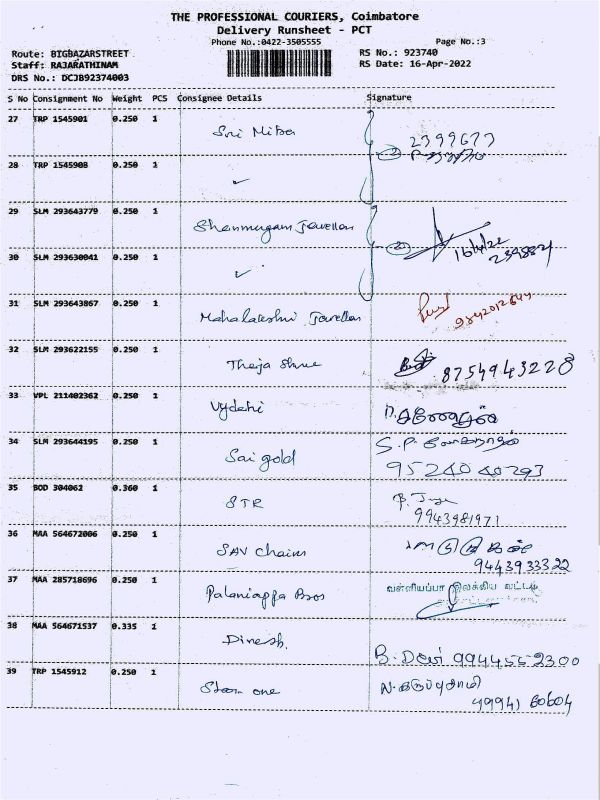 THE PROFESSIONAL COURIERS, Coimbatore
Delivery Runsheet - PCT
Phone No.:0422-3505555 Page No.:3
Route: BIGBAZARSTREET RS No.: 923740
Staff: RAJARATHINAM RS Date: 16-Apr-2022
DRS No.: DCJB92374003
S No Consignment No Weight PCS Consignee Details Signature
27 TRP 1545901 0.250 1 Sri Mitra 2399677
28 TRP 1545908 0.250 1 ✓
29 SLM 293643779 0.250 1 Shanmugam Jewellers
30 SLM 293630041 0.250 1 ✓ 16/4/22
31 SLM 293643867 0.250 1 Mahalakshmi Jewellers
32 SLM 293622155 0.250 1 Theja Shree 8754943228
33 VPL 211402362 0.250 1 Vydehi
34 SLM 293644195 0.250 1 Sai gold S.P.
9524040293
35 BOD 304062 0.360 1 STR
9943981971
36 MAA 564672006 0.250 1 SAV Chains
9443933322
37 MAA 285718696 0.250 1 Palaniappa Bros வள்ளியப்பா இலக்கிய வட்டம்
38 MAA 564671537 0.335 1 Dinesh.
B. 9944552300
39 TRP 1545912 0.250 1 Star one N. கருப்புசாமி